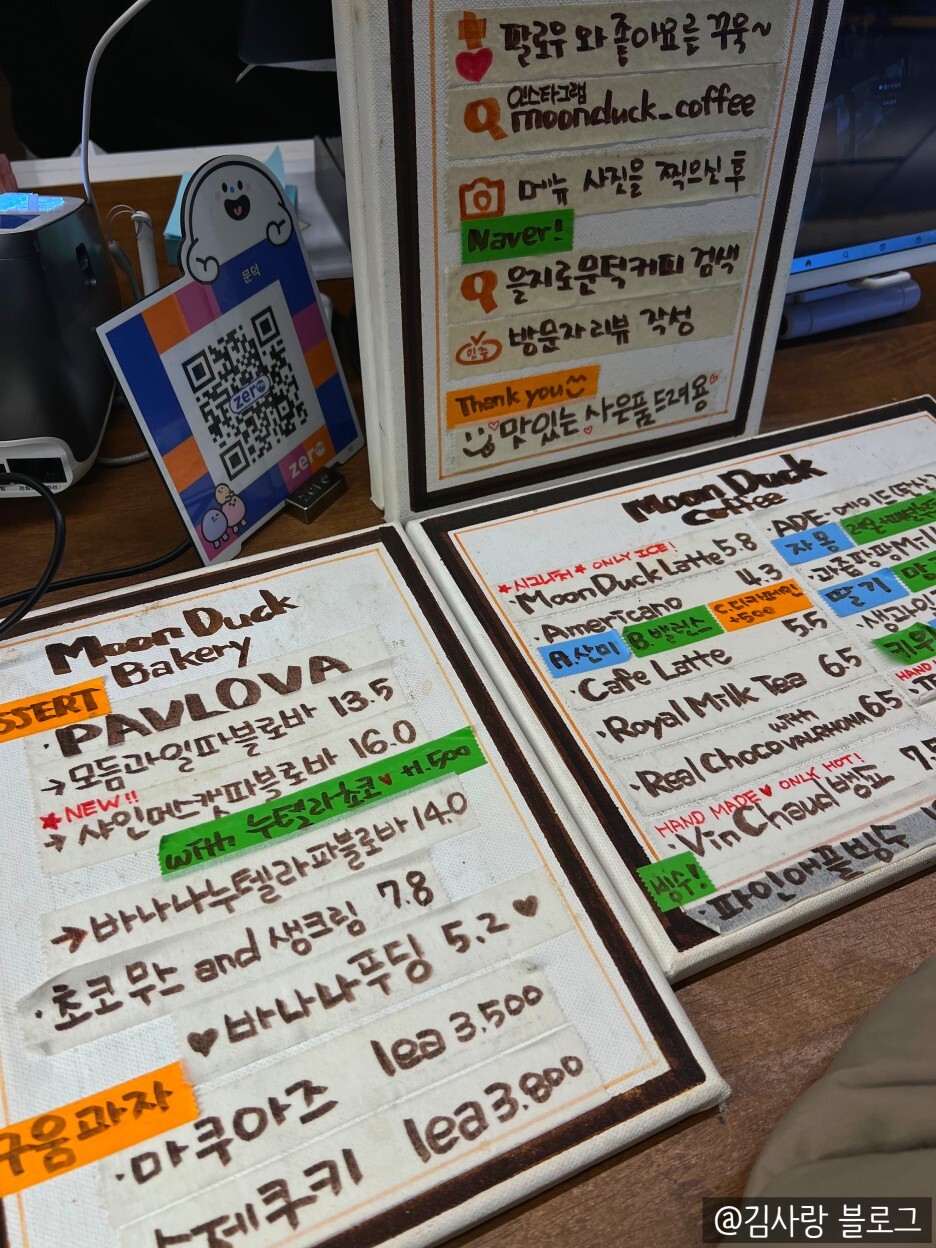 팔로우 와 좋아요를 꾸욱~
인스타그램
moonduck_coffee
메뉴 사진을 찍으신 후
Naver!
을지로문덕커피 검색
방문자리뷰 작성
Thank you
맛있는 사은품드려용
문덕
zero
zero
Moon Duck
Bakery
SSERT
· PAVLOVA
→ 모듬과일파블로바 13.5
★ NEW!!
→ 샤인머스캣파블로바 16.0
with 누텔라쵸코♥ +1.500
→ 바나나누텔라파블로바 14.0
· 초코무스 and 생크림 7.8
♥ 바나나푸딩 5.2 ♥
구움과자
· 마쿠아즈 1ea 3.500
수제쿠키 1ea 3.800
Moon Duck
Coffee
★시그니처★ ONLY ICE!
· MoonDuck Latte 5.8
· Americano 4.3
A.산미 B.밸런스 C.디카페인 +500
· Cafe Latte 5.5
· Royal Milk Tea 6.5
· Real Choco with VALRHONA 6.5
HAND MADE ♥ ONLY HOT!
· Vin Chaud 뱅쇼 7.5
빙수!
· 파인애플빙수
ADE·에이드
자몽
딸기
키위
@김사랑 블로그